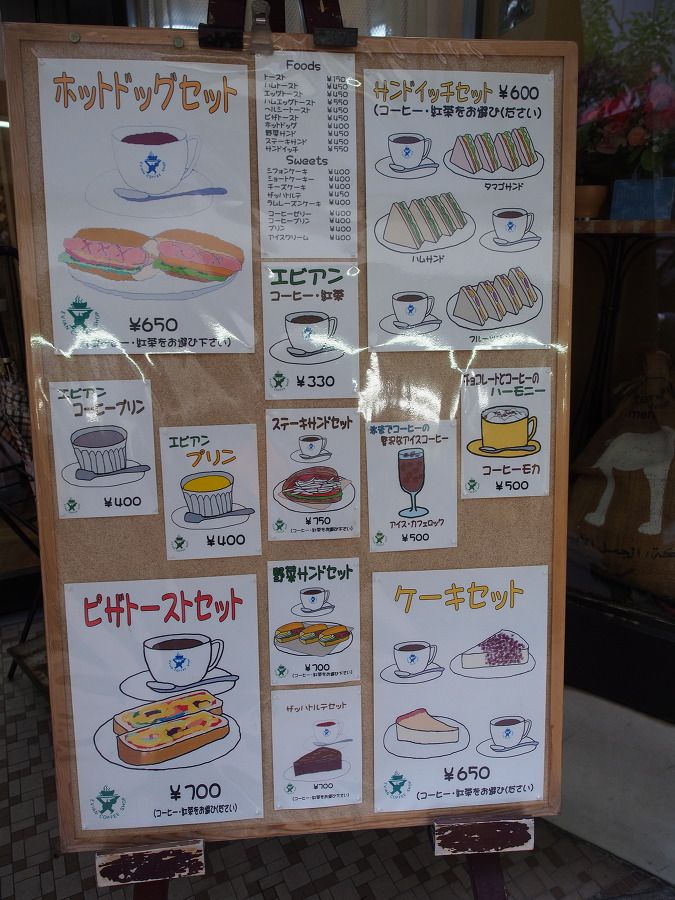 ホットドッグセット
¥650
(コーヒー・紅茶をお選び下さい)
Foods
トースト ¥150
ハムトースト ¥450
エッグトースト ¥450
ハムエッグトースト ¥550
ヘルシートースト ¥450
ピザトースト ¥450
ホットドッグ ¥400
野菜サンド ¥450
ステーキサンド ¥450
サンドイッチ ¥550
Sweets
シフォンケーキ ¥400
ショートケーキ ¥400
チーズケーキ ¥400
ザッハトルテ ¥450
ラムレーズンケーキ ¥400
コーヒーゼリー ¥400
コーヒープリン ¥400
プリン ¥400
アイスクリーム ¥400
サンドイッチセット ¥600
(コーヒー・紅茶をお選びください)
タマゴサンド
ハムサンド
エビアン
コーヒー・紅茶
¥330
エビアン
コーヒープリン
¥400
エビアン
プリン
¥400
ステーキサンドセット
¥750
(コーヒー・紅茶をお選び下さい)
氷までコーヒーの
贅沢なアイスコーヒー
アイス・カフェロック
¥500
チョコレートとコーヒーの
ハーモニー
コーヒーモカ
¥500
ピザトーストセット
¥700
(コーヒー・紅茶をお選び下さい)
EVIAN COFFEE SHOP
野菜サンドセット
¥700
(コーヒー・紅茶をお選び下さい)
ザッハトルテセット
¥700
(コーヒー・紅茶をお選び下さい)
ケーキセット
¥650
(コーヒー・紅茶をお選びください)
EVIAN COFFEE SHOP